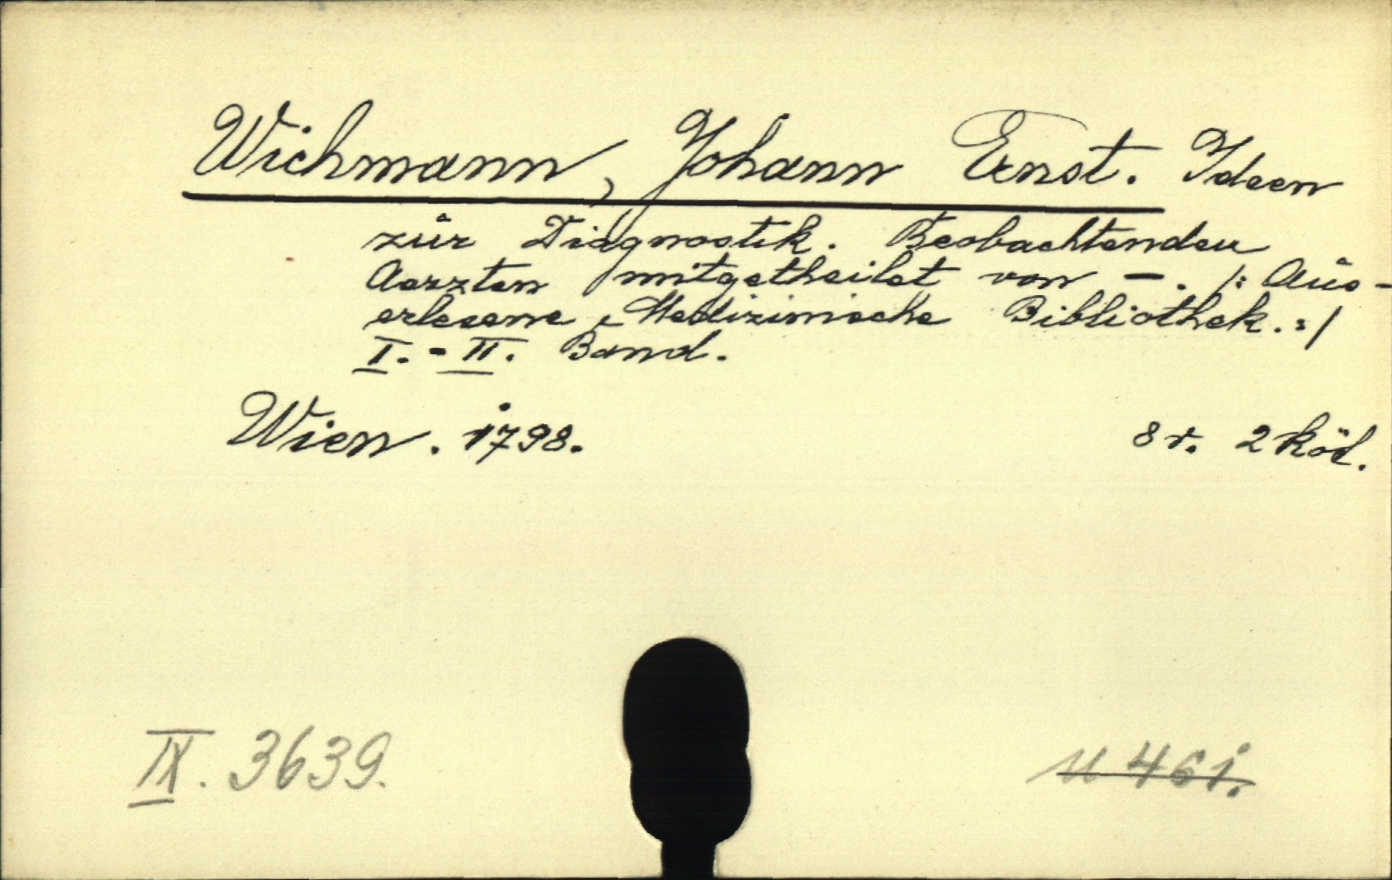 Wichmann, Johann Ernst. Ideen
zur Diagnostik. Beobachtenden
Aerzten mitgetheilet von —. /: Aus-
erlesene Medizinische Bibliothek. :/
I. - II. Band.
Wien. 1798. 8 r. 2 köt.
IX. 3639. U 461.